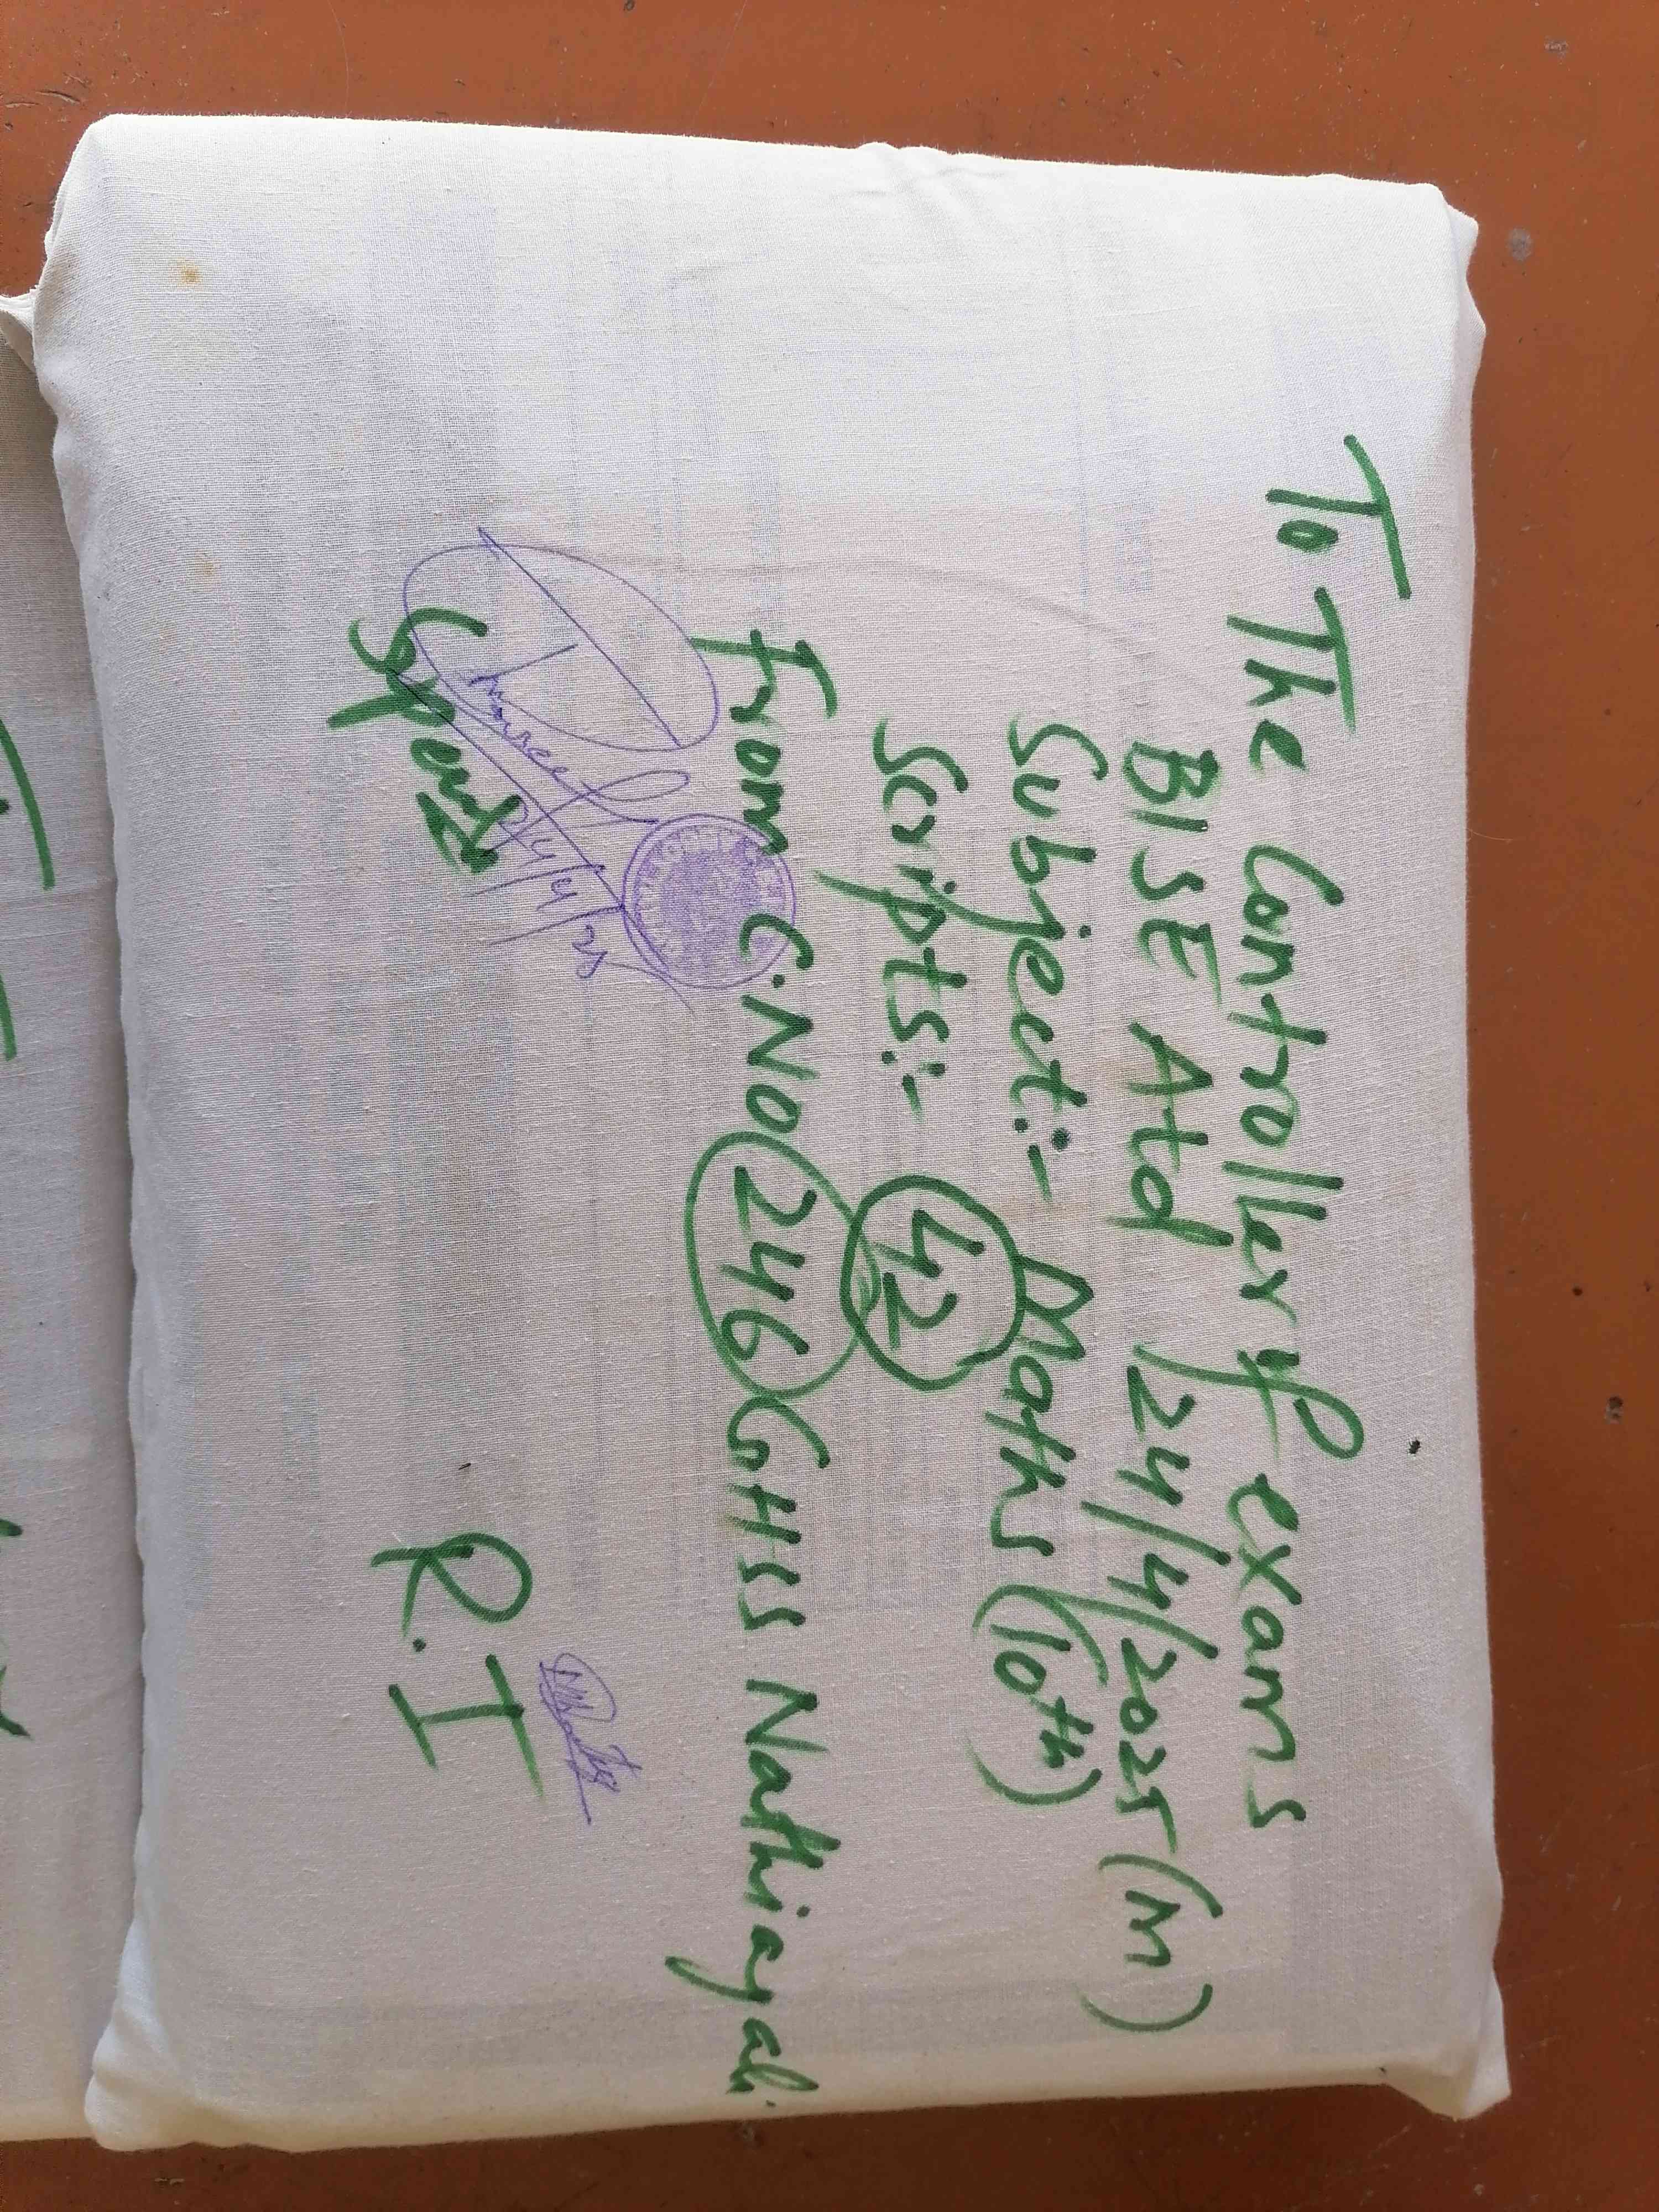 To The Controller of exams
BISE Atd 24/4/2025 (M)
Subject:- Maths (10th)
Scripts:- 42
From C.NO 246 GHSS Nathiagali.
24/4/25
R.I